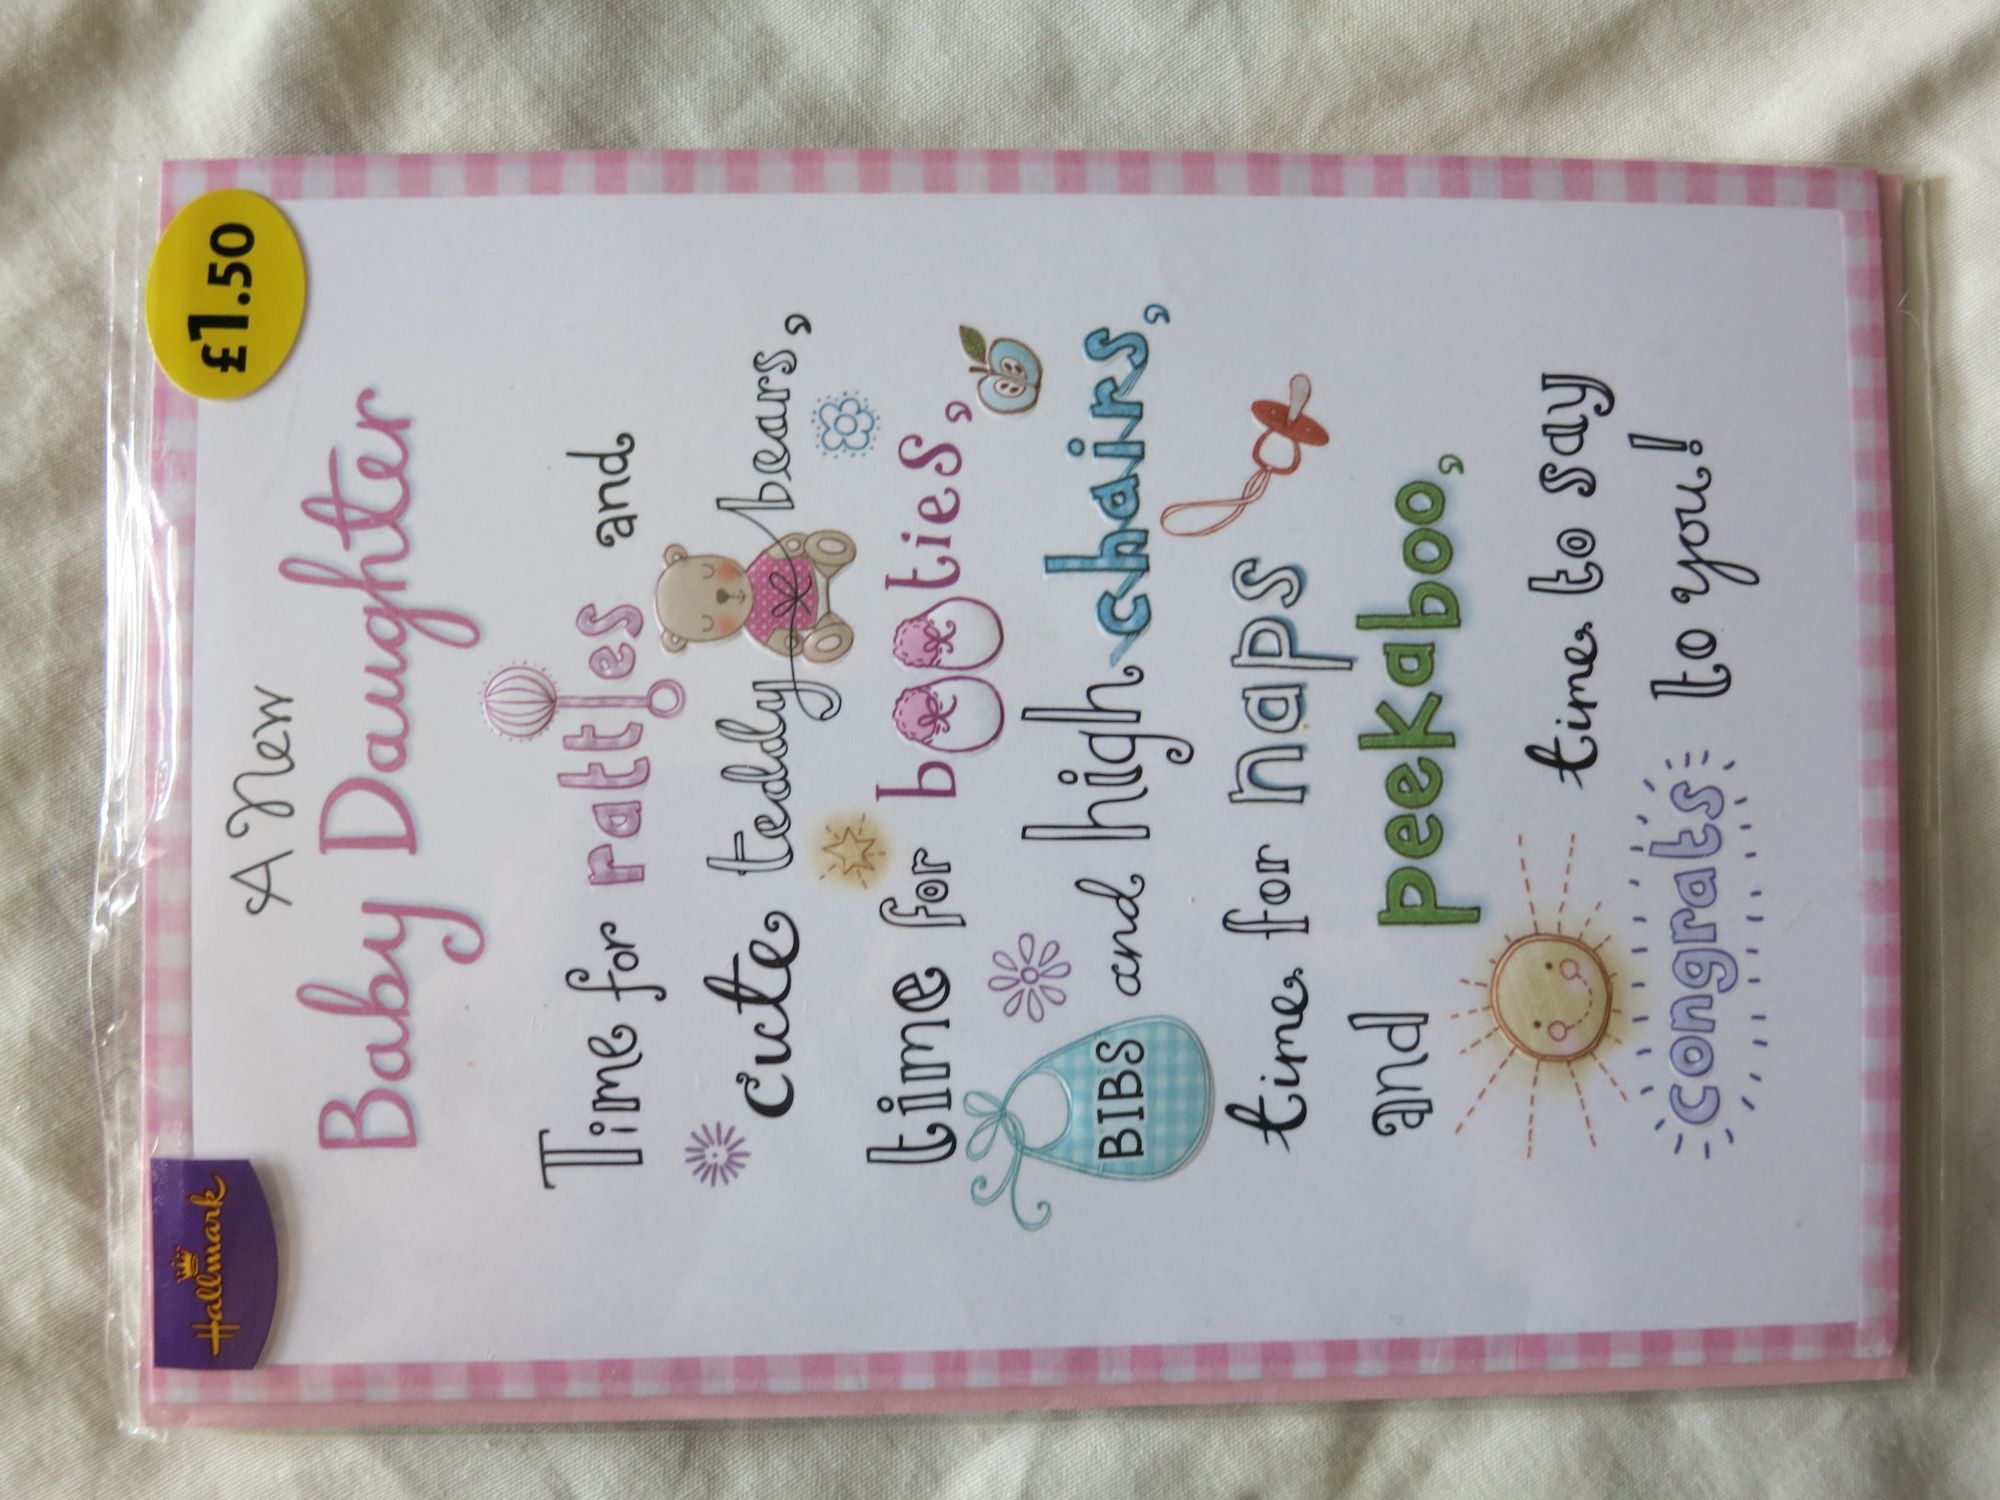 Hallmark
£1.50
A New
Baby Daughter
Time for rattles and
cute teddy bears,
time for booties,
BIBS and high chairs,
time for naps
and peekaboo,
time to say
congrats to you!